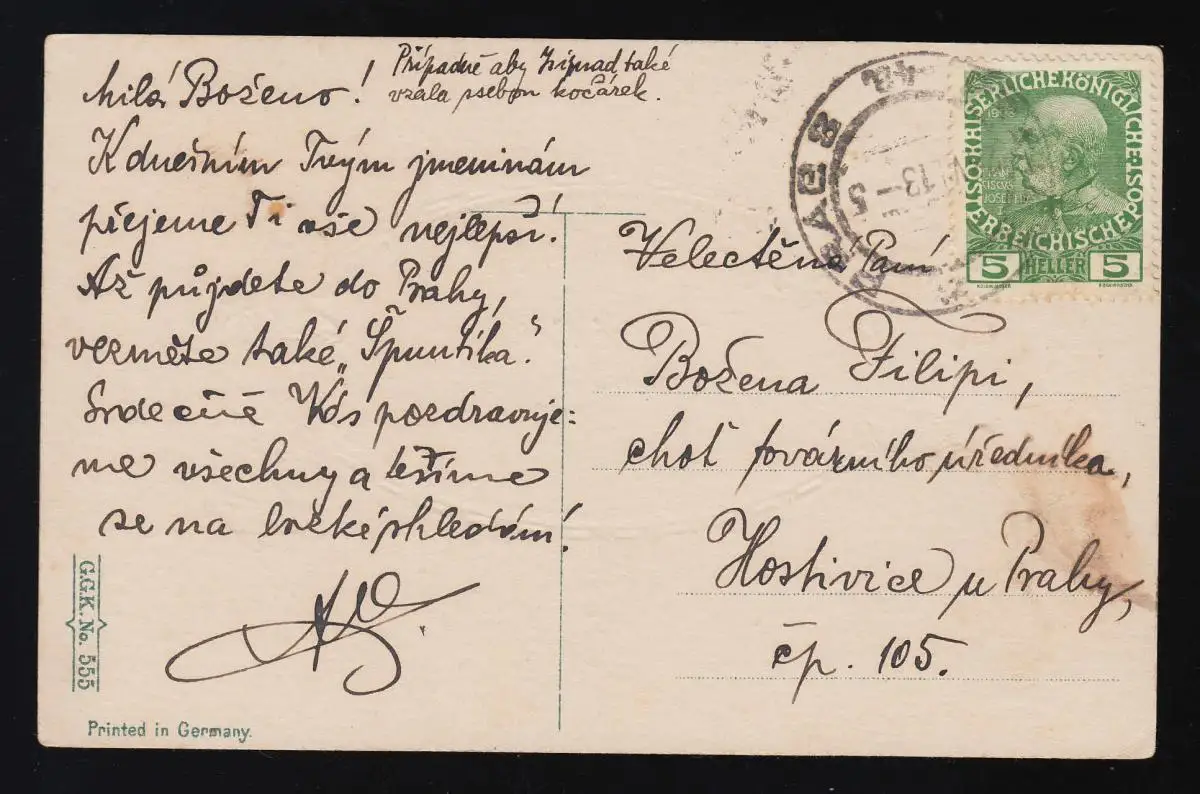 Milá Boženo!
Případně aby také
vzala s sebou kočárek.
K dnešním Tvým jmeninám
přejeme Ti vše nejlepší!
Až půjdete do Prahy,
vezměte také „Špuntíka“.
Srdečně Vás pozdravuje=
me všechny a těšíme
se na brzké shledání!
G.G.K. No. 555
Printed in Germany.
KAISERLICHE KÖNIGLICHE
ÖSTERREICHISCHE POST
5 HELLER 5
Velectěná Paní
Božena Filipi,
choť továrního úředníka,
Hostivice u Prahy,
čp. 105.